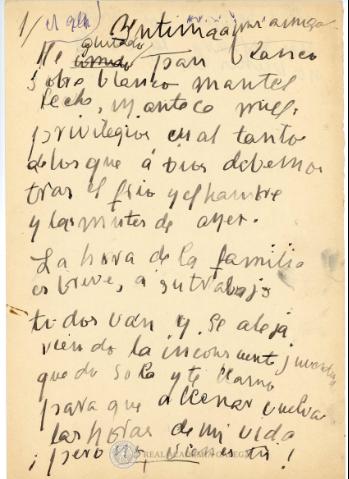 1/
Íntima
He gustado pan blanco
sobre blanco mantel
leche, manteca miel:
privilegios cual tantos
de los que á Dios debemos
tras el frio y el hambre
y las muertes de ayer.
La hora de la familia
es breve, a su trabajo
todos van y se aleja
riendo la inconsciente juventud
quedo sola y te llamo
para que a llenar vuelvas
las horas de mi vida
¡pero no, vienes tú!
REAL ACADEMIA GALEGA